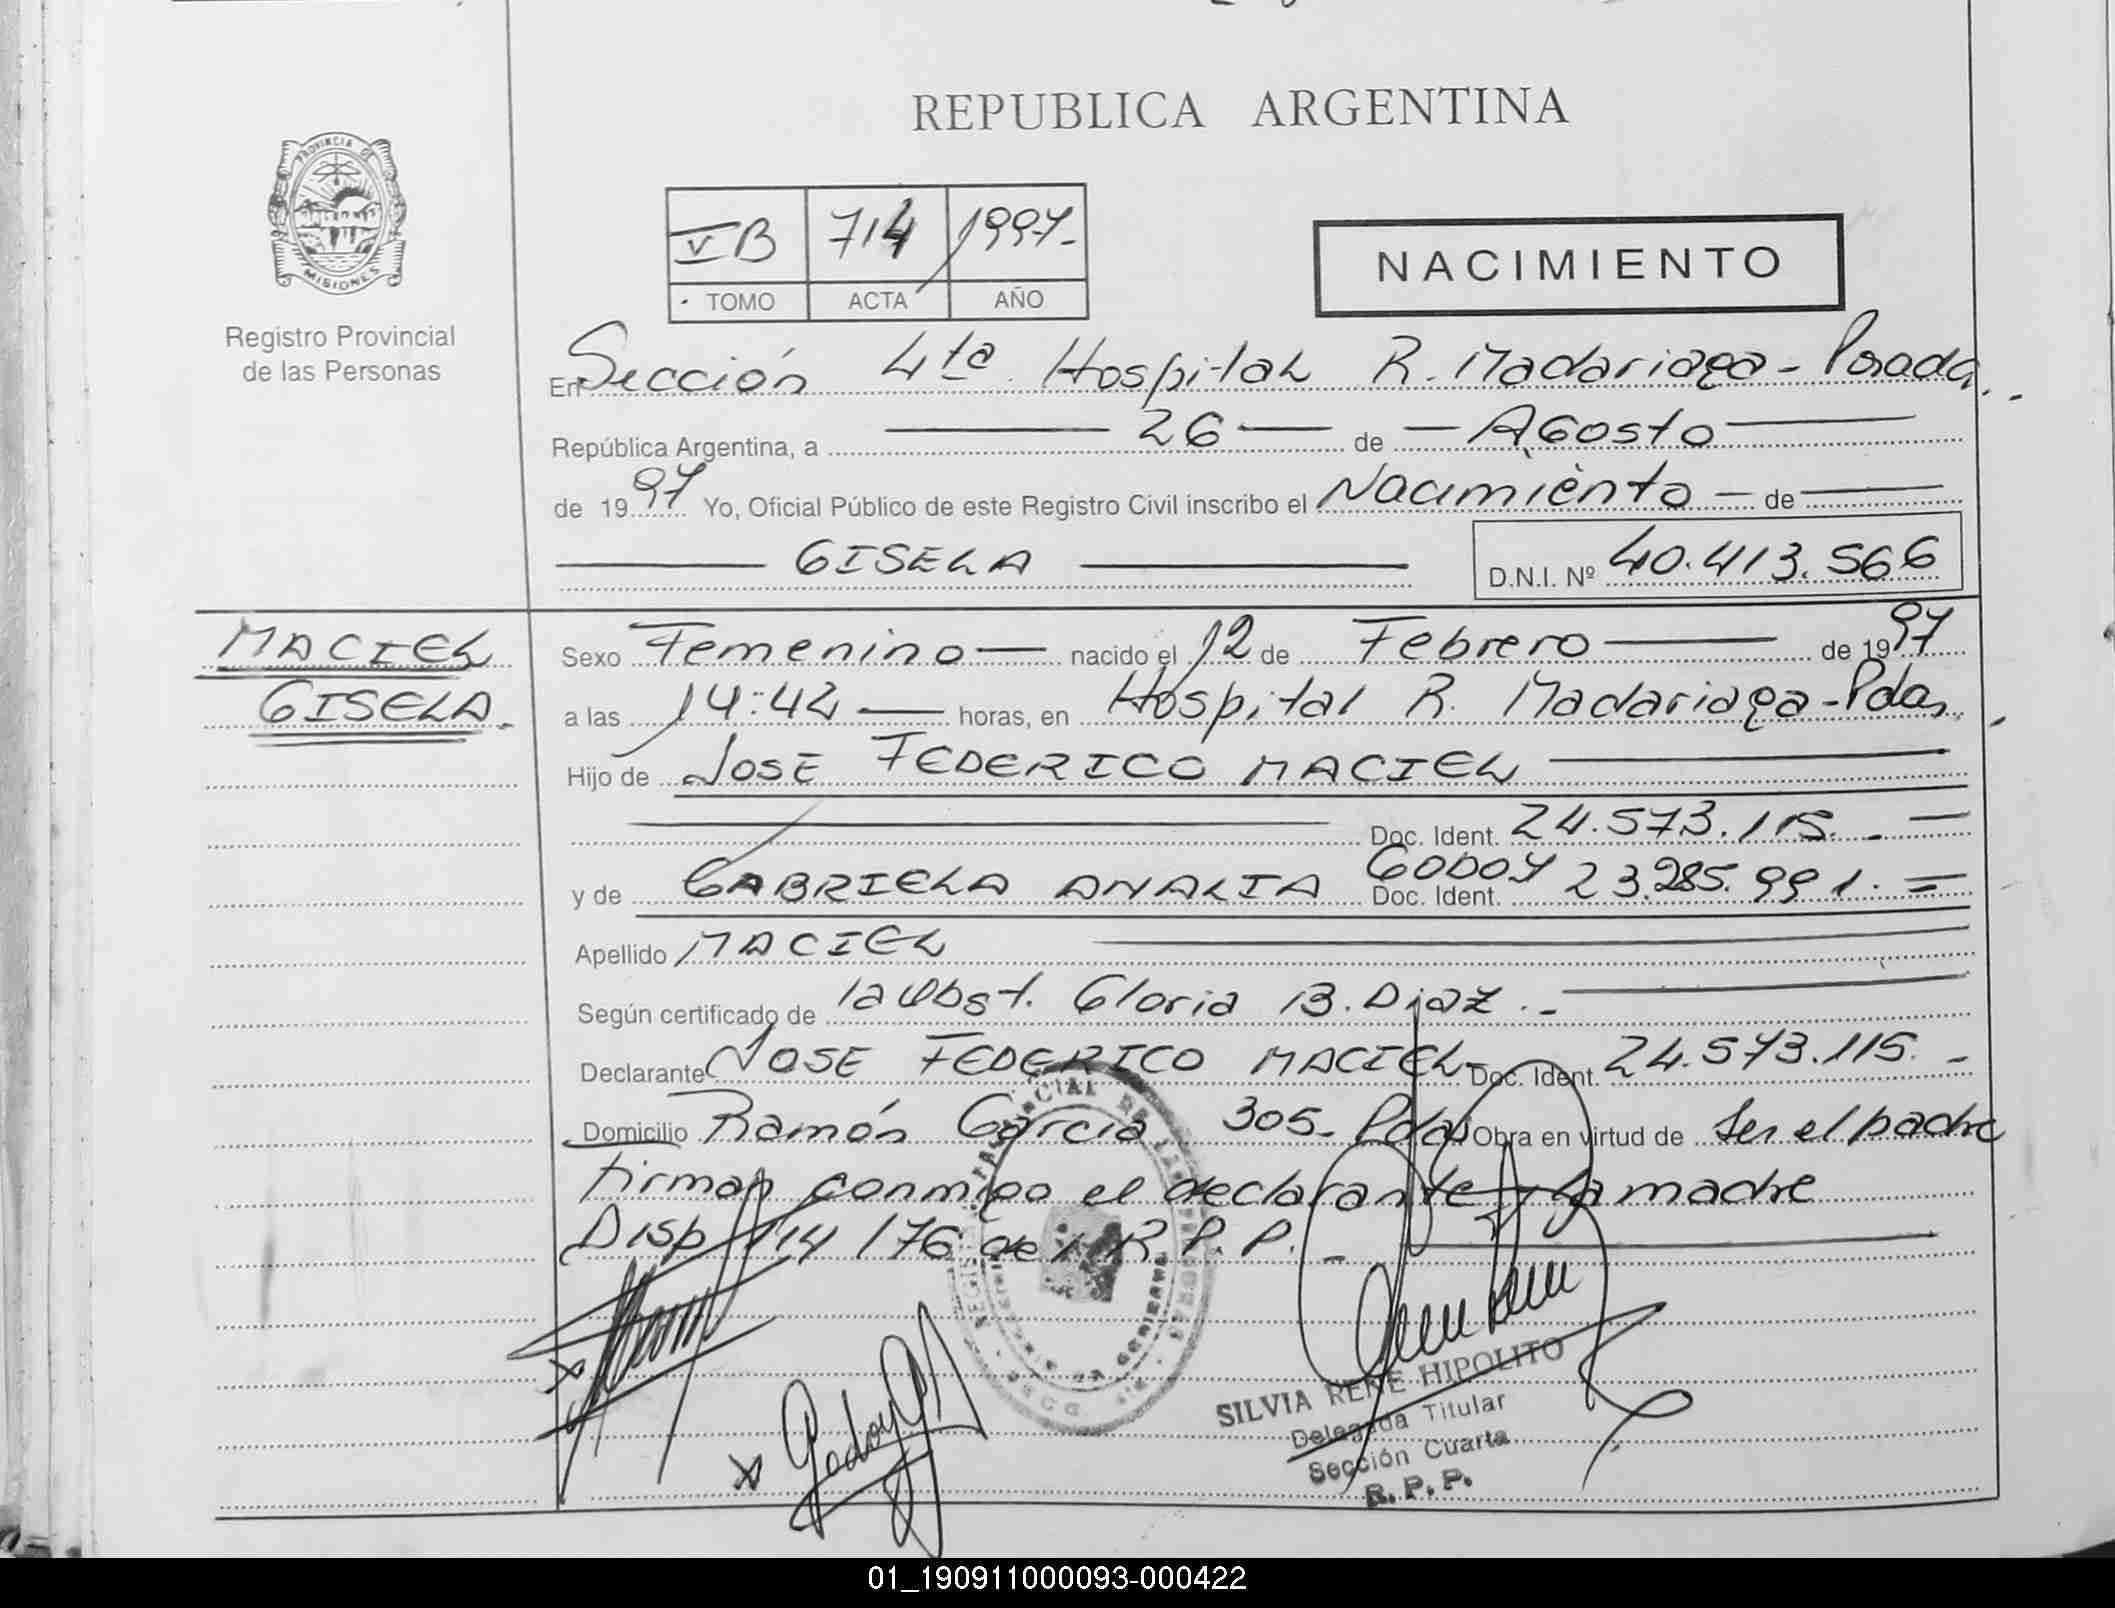 REPUBLICA ARGENTINA
PROVINCIA DE MISIONES
Registro Provincial
de las Personas
V B 714 1997.-
TOMO ACTA AÑO
NACIMIENTO
En Sección 4ta Hospital R. Madariaga - Posadas.-
República Argentina, a 26 de Agosto
de 1997 Yo, Oficial Público de este Registro Civil inscribo el Nacimiento de
GISELA D.N.I. Nº 40.413.566
MACIEL
GISELA.
Sexo Femenino nacido el 12 de Febrero de 1997
a las 14:42 horas, en Hospital R. Madariaga - Pdas.
Hijo de JOSE FEDERICO MACIEL
Doc. Ident. 24.573.115.-
y de GABRIELA ANALIA GODOY Doc. Ident. 23.285.991.-
Apellido MACIEL
Según certificado de la Obst. Gloria B. Diaz.-
Declarante JOSE FEDERICO MACIEL Doc. Ident. 24.573.115.-
Domicilio Ramón García 305- Pdas Obra en virtud de ser el padre
firman conmigo el declarante y la madre
Disp 114/76 de R.P.P.-
Godoy
SILVIA RENE HIPOLITO
Delegada Titular
Sección Cuarta
R.P.P.
01_190911000093-000422